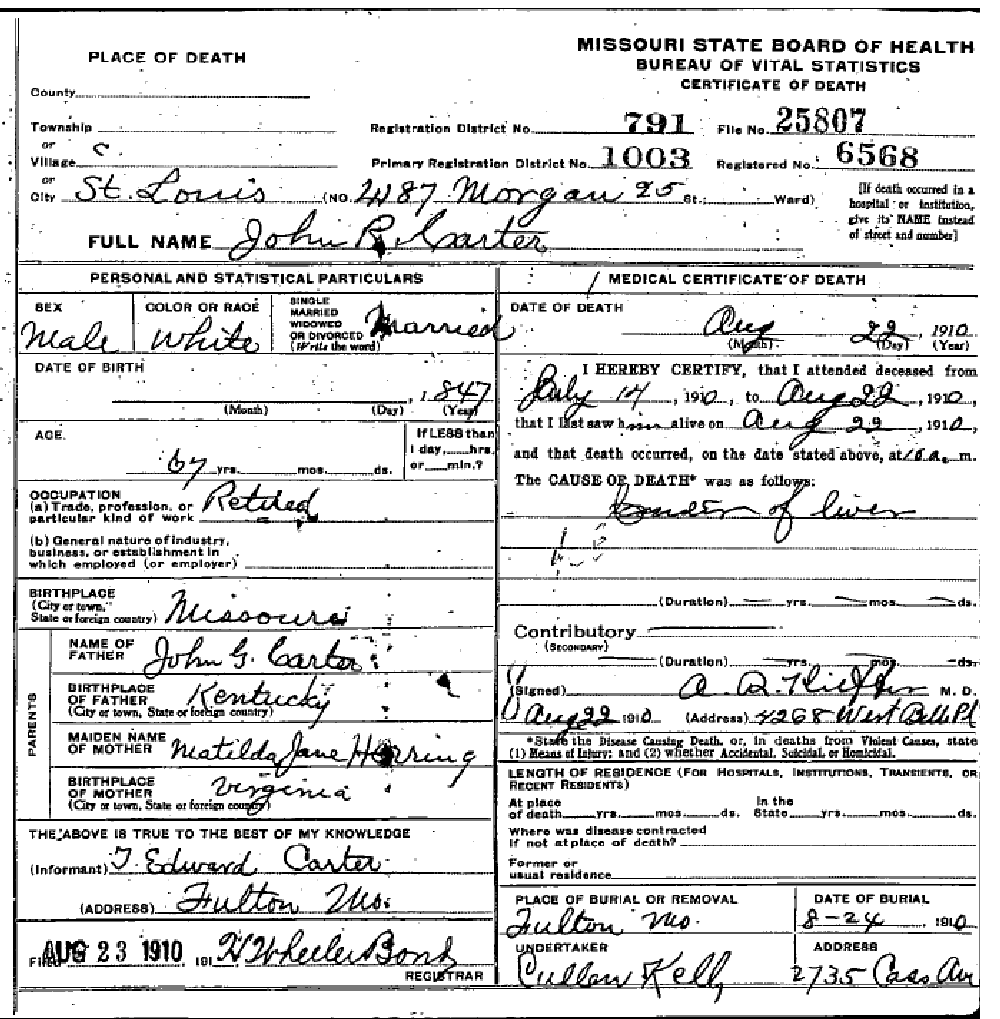 PLACE OF DEATH
MISSOURI STATE BOARD OF HEALTH
BUREAU OF VITAL STATISTICS
CERTIFICATE OF DEATH
County
Township
Registration District No. 791 File No. 25807
or
Village C.
Primary Registration District No. 1003 Registered No. 6568
or
City St. Louis (NO. Morgan 25 St.; Ward)
[If death occurred in a
hospital or institution,
give its NAME instead
of street and number]
FULL NAME John R. Carter
PERSONAL AND STATISTICAL PARTICULARS
SEX
Male
COLOR OR RACE
White
SINGLE
MARRIED
WIDOWED
OR DIVORCED
(Write the word)
Married
DATE OF BIRTH
, 1847
(Month) (Day) (Year)
AGE
yrs. mos. ds.
If LESS than
1 day, hrs.
or min.?
OCCUPATION
(a) Trade, profession, or
particular kind of work Retired
(b) General nature of industry,
business, or establishment in
which employed (or employer)
BIRTHPLACE
(City or town,
State or foreign country) Missouri
PARENTS
NAME OF
FATHER John G. Carter
BIRTHPLACE
OF FATHER
(City or town, State or foreign country) Kentucky
MAIDEN NAME
OF MOTHER Matilda Jane Herring
BIRTHPLACE
OF MOTHER
(City or town, State or foreign country) Virginia
THE ABOVE IS TRUE TO THE BEST OF MY KNOWLEDGE
(Informant) T. Edward Carter
(ADDRESS) Fulton Mo.
AUG 23 1910 191 H Wheeler Bond
REGISTRAR
MEDICAL CERTIFICATE OF DEATH
DATE OF DEATH
Aug 22, 1910
(Month) (Day) (Year)
I HEREBY CERTIFY, that I attended deceased from
July 14, 1910, to Aug 22, 1910,
that I last saw him alive on Aug 22, 1910,
and that death occurred, on the date stated above, at 10 a. m.
The CAUSE OF DEATH* was as follows:
of liver
(Duration) yrs. mos. ds.
Contributory
(SECONDARY)
(Duration) yrs. mos. ds.
(Signed) M. D.
Aug 22 1910 (Address) 4268 West Belle Pl
*State the Disease Causing Death, or, in deaths from Violent Causes, state
(1) Means of Injury; and (2) whether Accidental, Suicidal, or Homicidal.
LENGTH OF RESIDENCE (FOR HOSPITALS, INSTITUTIONS, TRANSIENTS, OR
RECENT RESIDENTS)
At place In the
of death yrs. mos. ds. State yrs. mos. ds.
Where was disease contracted
If not at place of death?
Former or
usual residence
PLACE OF BURIAL OR REMOVAL
Fulton Mo.
DATE OF BURIAL
8-24, 1910
UNDERTAKER
Cullen Kelly
ADDRESS
2735 Cass Av